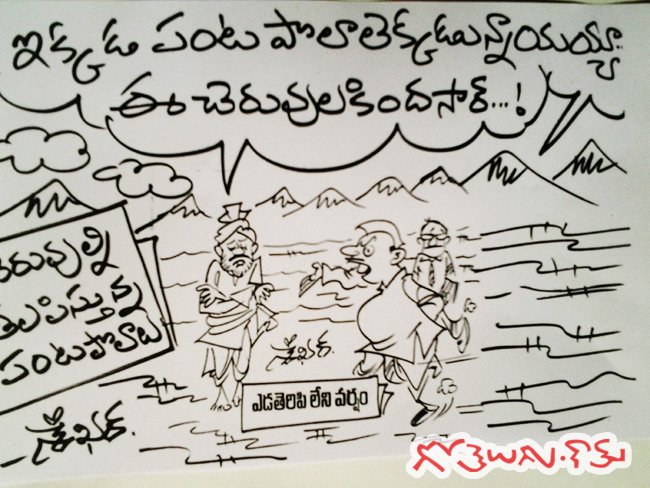 ఇక్కడ పంట పొలాలెక్కడున్నాయయ్యా..
ఈ చెరువులకిందసార్...!
చెరువుల్ని
తలపిస్తున్న
పంటపొలాలు
శేఖర్.
ఎడతెరిపి లేని వర్షం
శేఖర్.
గోతెలుగు.కామ్